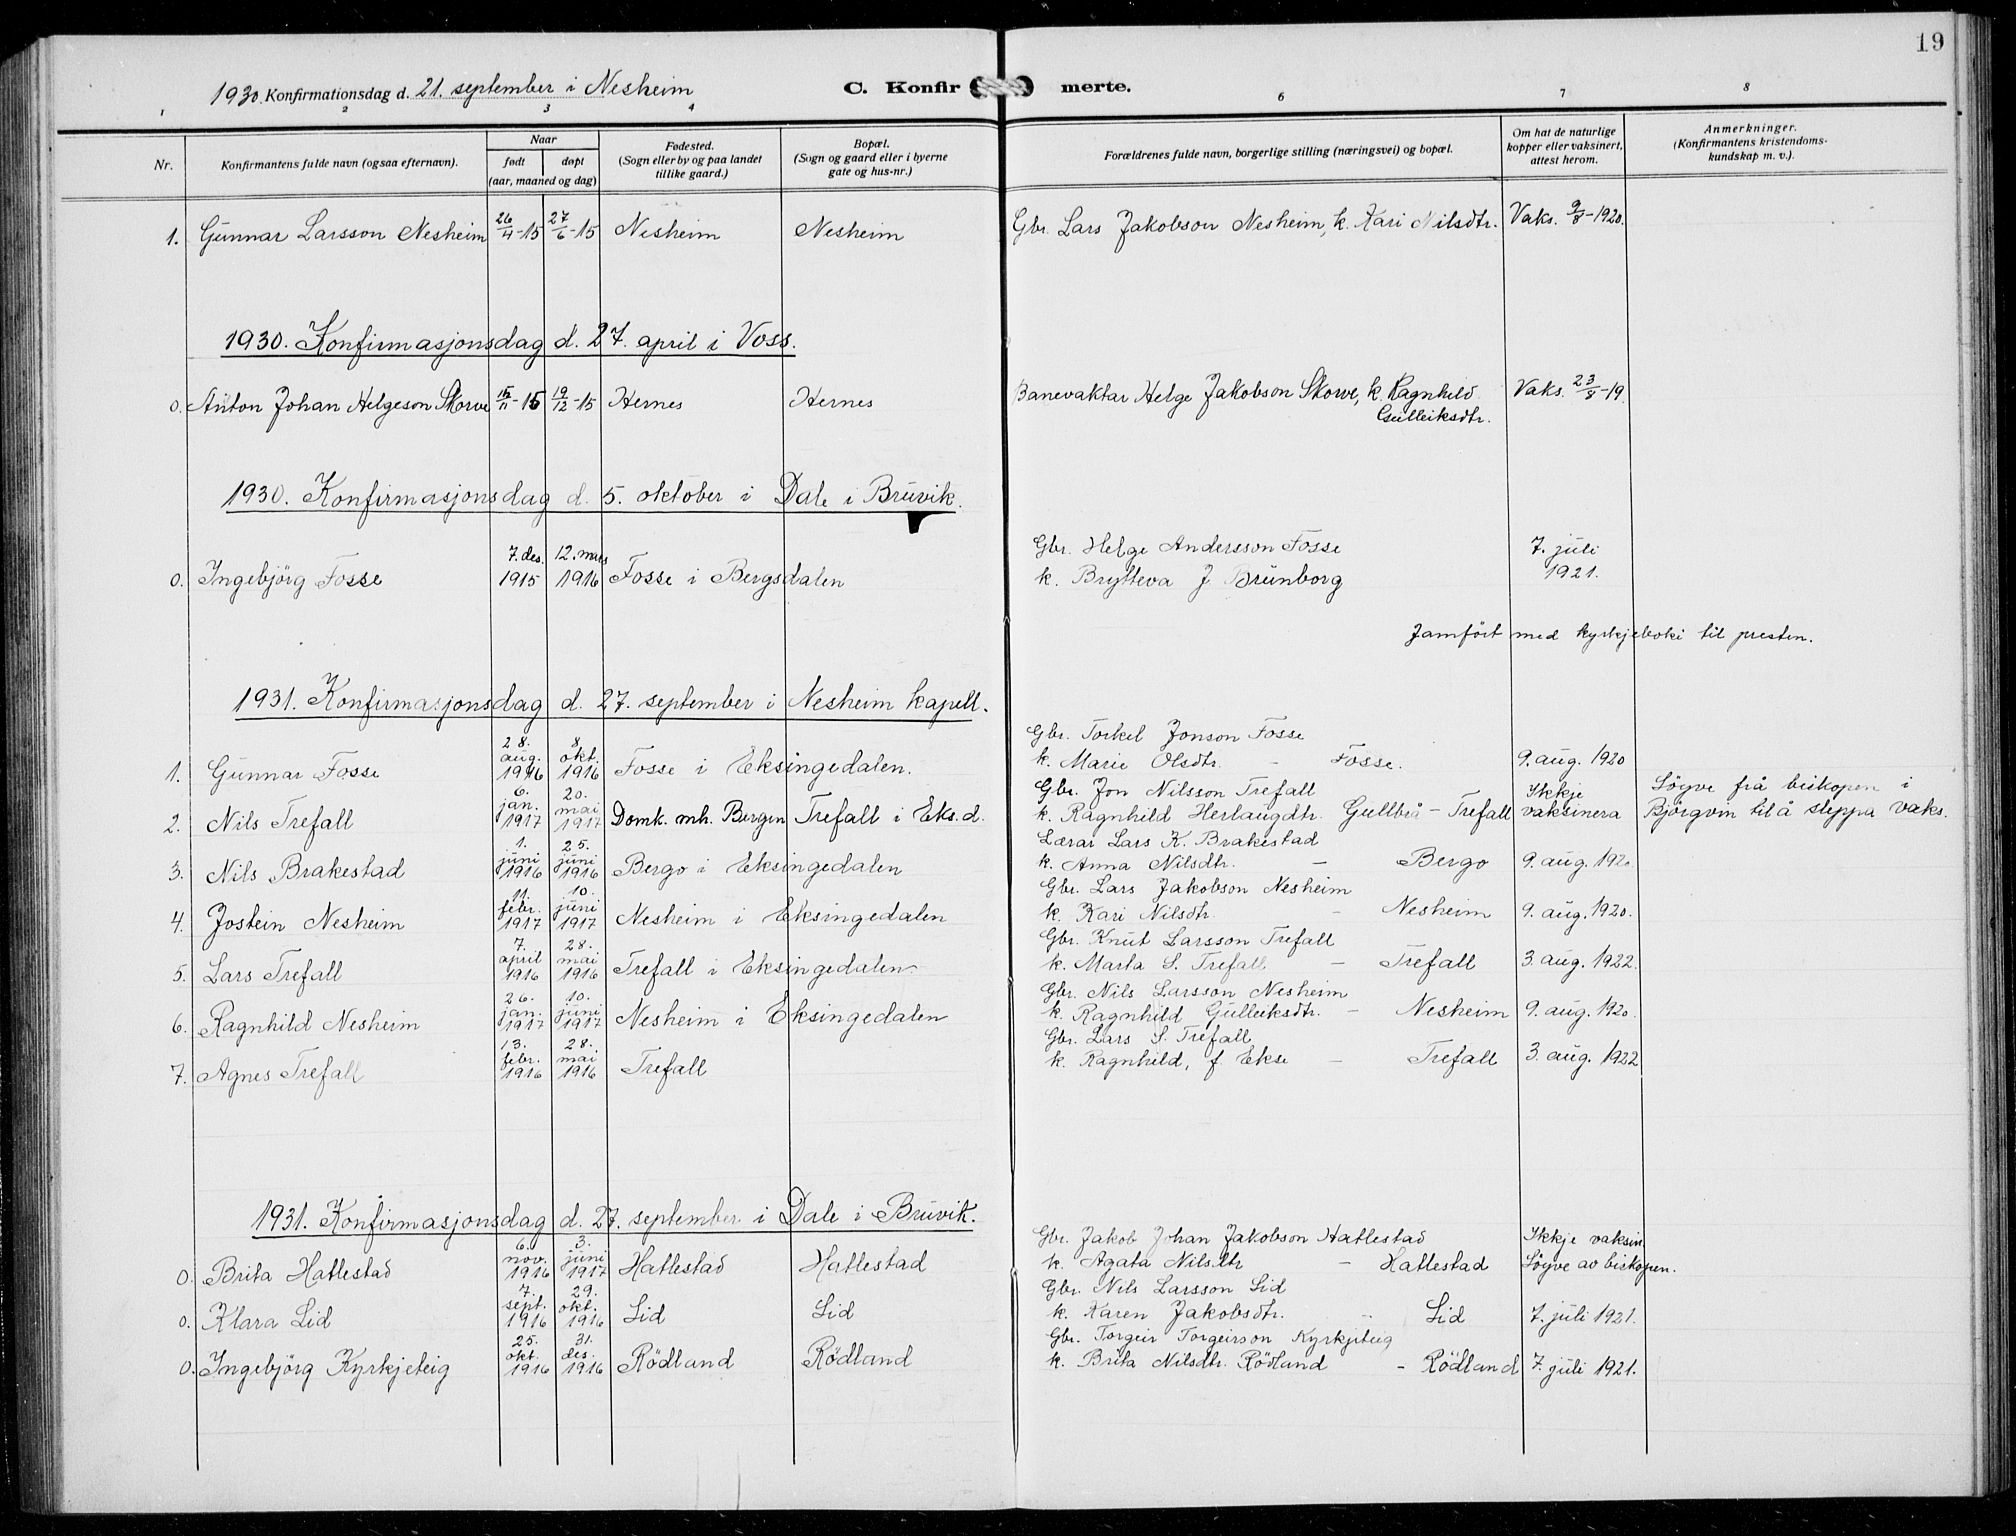 19
1930. Konfirmationsdag d. 21. september i Nesheim
C. Konfirmerte.
1 2 3 4 6 7 8
Nr.
Konfirmantens fulde navn (ogsaa efternavn).
Naar
født døpt
(aar, maaned og dag)
Fødested.
(Sogn eller by og paa landet
tillike gaard.)
Bopæl.
(Sogn og gaard eller i byerne
gate og hus-nr.)
Forældrenes fulde navn, borgerlige stilling (næringsvei) og bopæl.
Om hat de naturlige
kopper eller vaksinert,
attest herom.
Anmerkninger.
(Konfirmantens kristendoms-
kundskap m. v.).
1. Gunnar Larsson Nesheim 26/4-15 27/6-15 Nesheim Nesheim Gbr. Lars Jakobson Nesheim, k. Kari Nilsdtr. Vaks. 9/8-1920.
1930. Konfirmasjonsdag d. 27. april i Voss.
0. Anton Johan Helgeson Skorve 15/11-15 19/12-15 Hernes Hernes Banevaktar Helge Jakobson Skorve, k. Ragnhild Vaks. 23/8-19.
Gulleiksdtr.
1930. Konfirmasjonsdag d. 5. oktober i Dale i Bruvik.
7. des. 12. mars Gbr. Helge Andersson Fosse 7. juli
0. Ingebjörg Fosse 1915 1916 Fosse i Bergsdalen k. Brytteva J. Brunborg 1921.
Jamfört med kyrkjeboki til presten.
1931. Konfirmasjonsdag d. 27. september i Nesheim kapell.
28. 8. Gbr. Torkel Jonson Fosse
aug. okt.
1. Gunnar Fosse 1916 1916 Fosse i Eksingedalen. k. Marie Olsdtr. - Fosse. 9. aug. 1920
6. 20. Gbr. Jon Nilsson Trefall Ikkje Löyve frå biskopen i
jan. mai
2. Nils Trefall 1917 1917 Domk. mh. Bergen Trefall i Eks.d. k. Ragnhild Herlaugdtr. Gullbrå - Trefall vaksinera Björgvin til å sleppa vaks.
1. 25. Lærar Lars K. Brakestad
juni juni
3. Nils Brakestad 1916 1916 Bergo i Eksingedalen k. Anna Nilsdtr. - Bergo 9. aug. 1920
11. 10. Gbr. Lars Jakobson Nesheim
febr. juni
4. Jostein Nesheim 1917 1917 Nesheim i Eksingedalen k. Kari Nilsdtr. - Nesheim 9. aug. 1920.
7. 28. Gbr. Knut Larsson Trefall
april mai
5. Lars Trefall 1916 1916 Trefall i Eksingedalen. k. Marta S. Trefall - Trefall 3. aug. 1922.
26. 10. Gbr. Nils Larsson Nesheim
jan. juni
6. Ragnhild Nesheim 1917 1917 Nesheim i Eksingedalen k. Ragnhild Gulleiksdtr. - Nesheim 9. aug. 1920.
13. 28. Gbr. Lars S. Trefall
febr. mai
7. Agnes Trefall 1916 1916 Trefall k. Ragnhild, f. Ekse - Trefall 3. aug. 1922
1931. Konfirmasjonsdag d. 27. september i Dale i Bruvik.
6. 3. Gbr. Jakob Johan Jakobson Hatlestad Ikkje vaksin.
nov. juni
0. Brita Hatlestad 1916 1917 Hatlestad Hatlestad k. Agata Nilsdtr - Hatlestad Löyve av biskopen.
7. 29. Gbr. Nils Larsson Lid
sept. okt.
0. Klara Lid 1916 1916 Lid Lid k. Karen Jakobsdtr. - Lid 7. juli 1921.
25. 31. Gbr. Torgeir Torgeirson Kyrkjeteig
okt. des.
0. Ingebjörg Kyrkjeteig 1916 1916 Rödland Rödland k. Brita Nilsdtr. Rödland - Rödland 7. juli 1921.